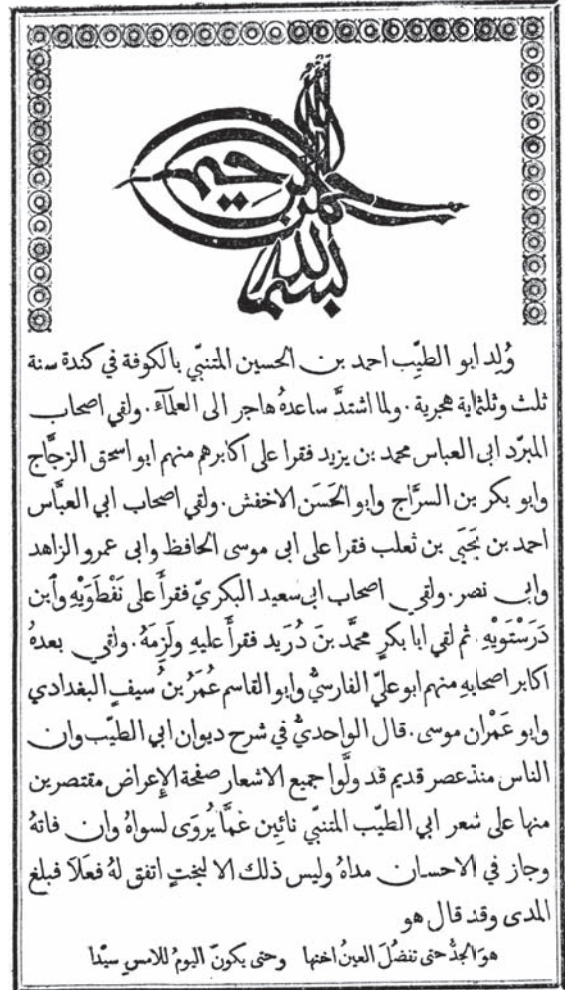 بسم الله الرحمن الرحيم
وُلِد ابو الطيِّب احمد بن الحسين المتنبّي بالكوفة في كندة سنة
ثلث وثلثماية هجرية . ولما اشتدَّ ساعدهُ هاجر الى العلمآءَ . ولقي اصحاب
المبرّد ابى العباس محمد بن يزيد فقرا على اكابرهم منهم ابو اسحق الزجَّاج
وابو بكر بن السرَّاج وابو الحَسَن الاخفش . ولقي اصحاب ابي العبَّاس
احمد بن يَحيَى بن ثعلب فقرا على ابى موسى الحافظ وابى عمرو الزاهد
وابى نصر . ولقي اصحاب ابى سعيد البكريّ فقرأَ على نَفْطَوَيْهِ وٱبن
دَرَسْتَويْهِ . ثم لقي ابا بكرٍ محمَّد بنَ دُرَيد فقرأَ عليهِ ولَزِمَهُ . ولقي بعدهُ
اكابر اصحابهِ منهم ابو عليّ الفارسيُّ وابو القاسم عُمَرُ بنُ سيفٍ البغدادي
وابو عَمْران موسى . قال الواحديُّ في شرح ديوان ابي الطيّب وان
الناس منذ عصر قديم قد ولَّوا جميع الاشعار صفحة الإِعراض مقتصرين
منها على شعر ابي الطيّب المتنبّي نائِين عَمَّا يُروَى لسواهُ وان فاتهُ
وجاز في الاحسان مداهُ وليس ذلك الا لبختٍ اتفق لهُ فعَلَا فبلغ
المدى وقد قال هو
هوَ الجدُّ حتى تفضُلَ العينُ اختها وحتى يكونَ اليومُ للامسِ سيّدا